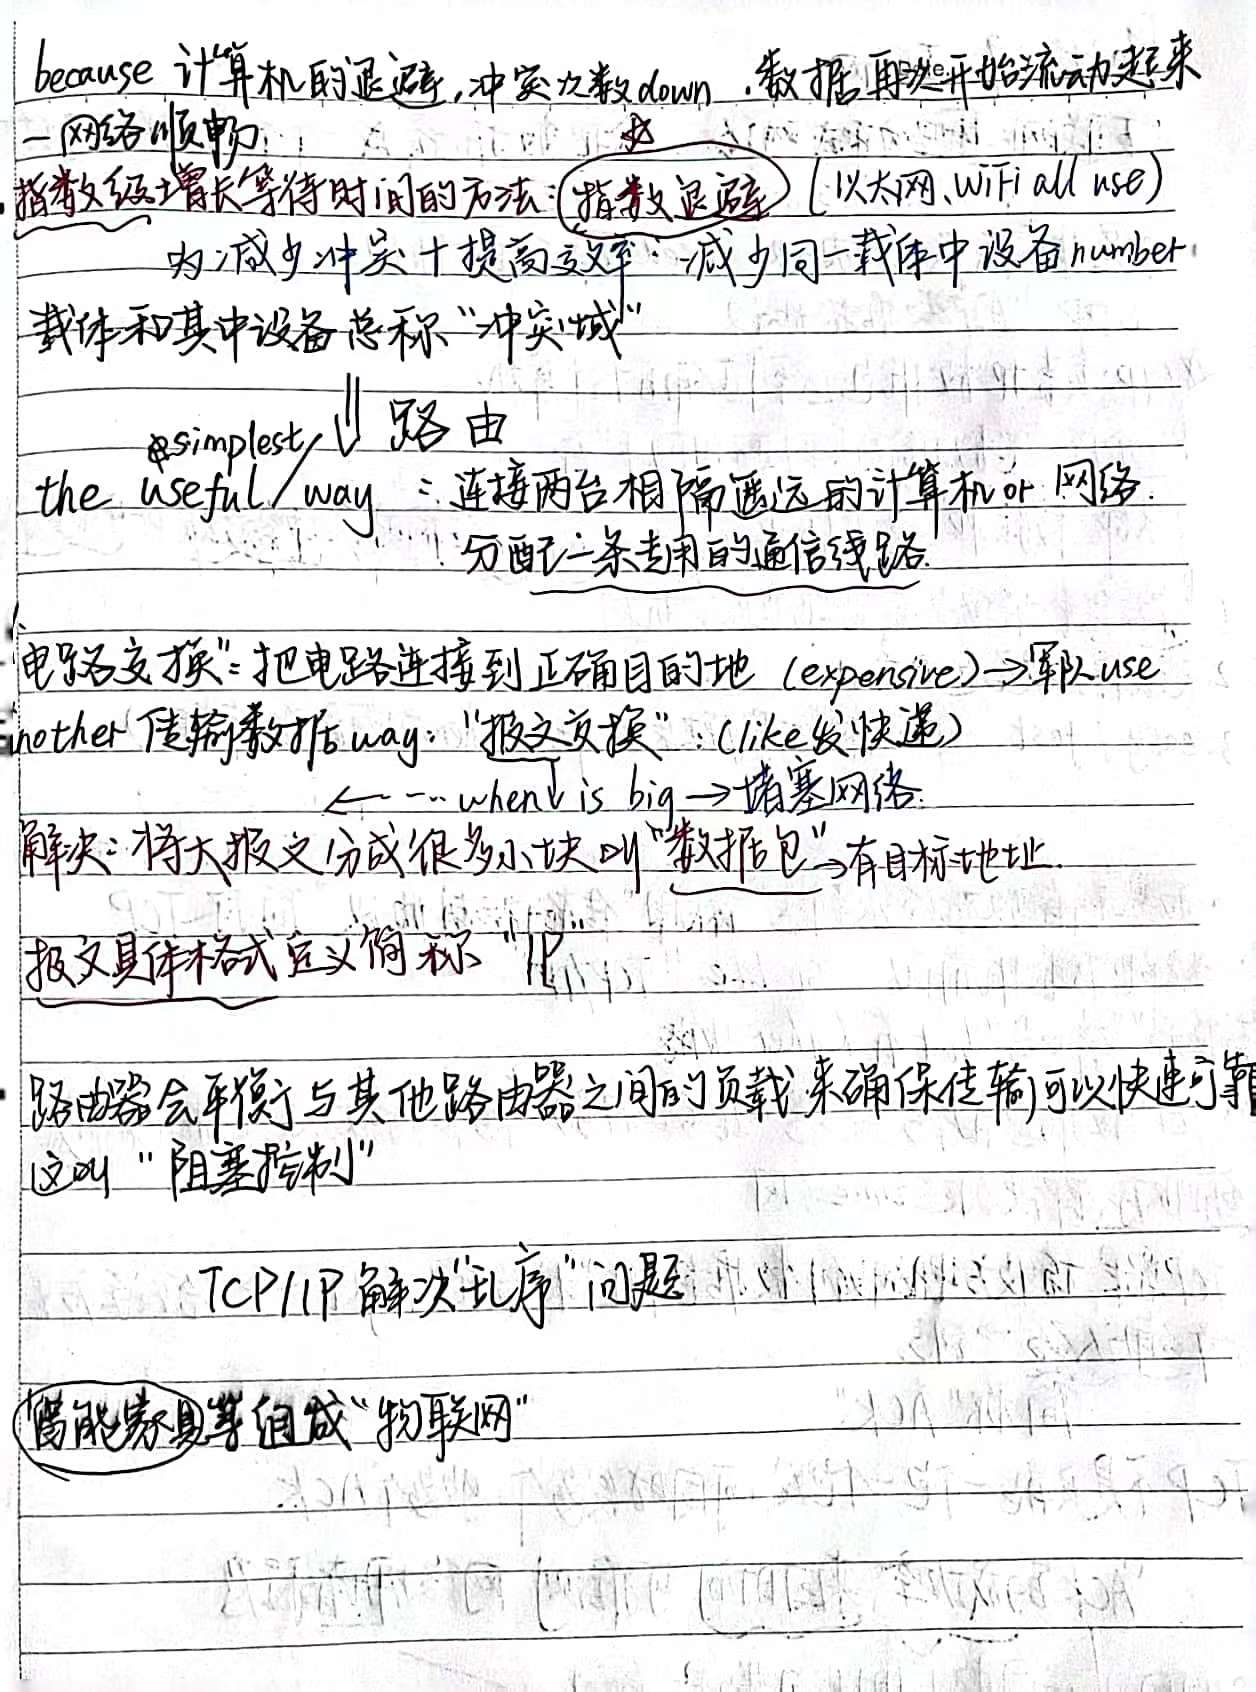 because 计算机的退避,冲突次数down,数据再次开始流动起来
—网络顺畅
指数级增长等待时间的方法:指数退避(以太网、WiFi all use)
为减少冲突+提高效率:减少同一载体中设备number
载体和其中设备总称"冲突域"
路由
simplest
the useful/way:连接两台相隔遥远的计算机or 网络.
分配一条专用的通信线路.
电路交换":把电路连接到正确目的地 (expensive)→军队use
nother 传输数据way:"报文交换":(like发快递)
←--··when↓is big→堵塞网络.
解决:将大报文分成很多小块叫"数据包"→有目标地址.
报文具体格式定义简称"IP"
路由器会平衡与其他路由器之间的负载来确保传输可以快速可靠
这叫"阻塞控制"
TCP/IP解决"乱序"问题
智能家具等组成"物联网"